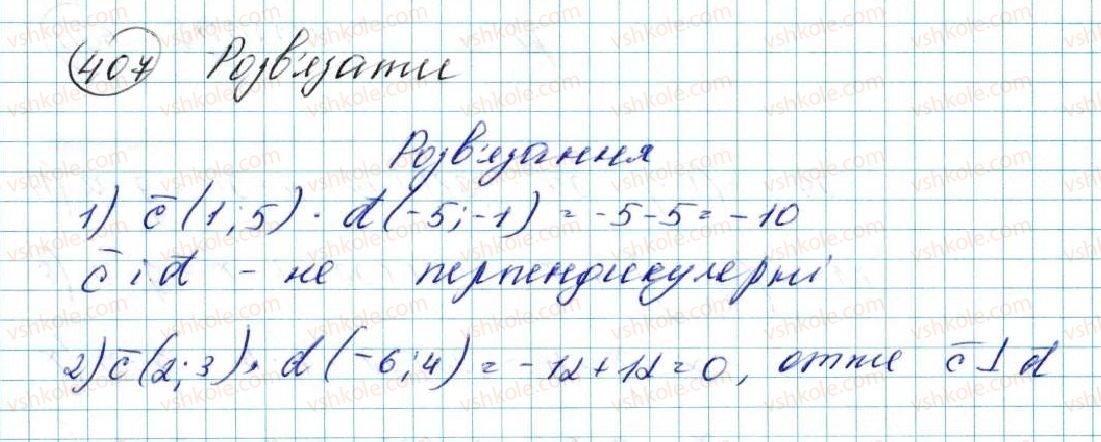 407 Розв'язати
Розв'язання
1) c̄ (1;5) · d̄ (-5;-1) = -5-5 = -10
c̄ і d̄ - не перпендикулярні
2) c̄ (2;3) · d (-6;4) = -12+12=0, отже c̄ ⊥ d̄